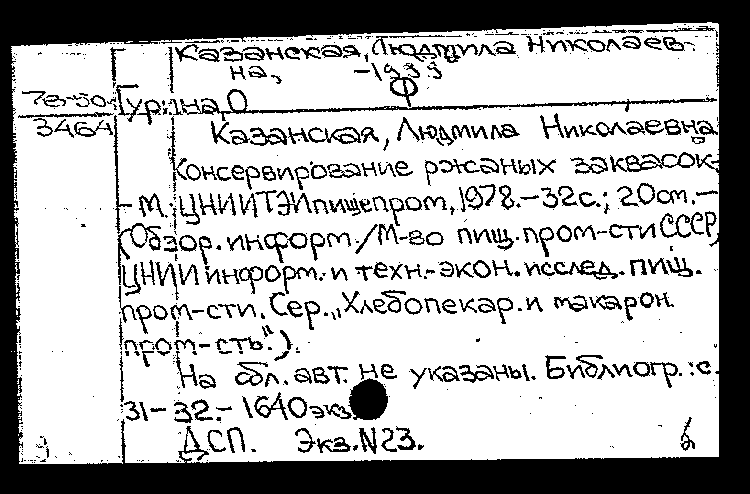 Казанская, Людмила Николаев-
на, -1933
Ф
78-50-
Гурина, О
3464
Казанская, Людмила Николаевна
Консервирование ржаных заквасок.
-М.: ЦНИИТЭИпищепром, 1978.-32с.; 20см.-
(Обзор. информ./М-во пищ. пром-сти СССР,
ЦНИИ информ. и техн.-экон. исслед. пищ.
пром-сти. Сер. „Хлебопекар. и макарон.
пром-сть".).
На обл. авт. не указаны. Библиогр.: с.
31-32.- 1640экз.
ДСП. Экз. N23.